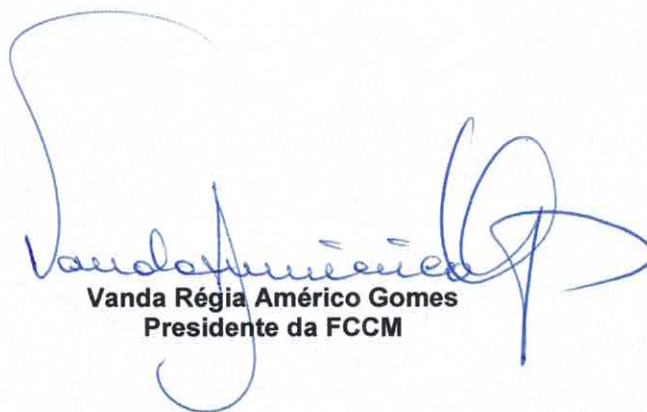 Vanda Américo
Vanda Régia Américo Gomes
Presidente da FCCM